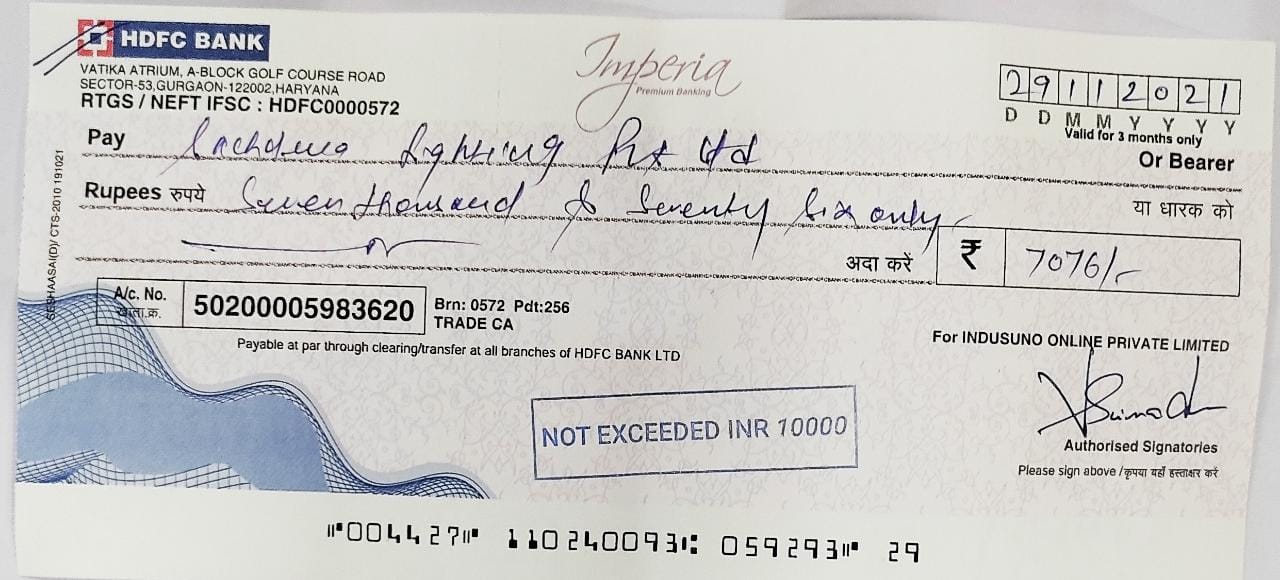 HDFC BANK
VATIKA ATRIUM, A-BLOCK GOLF COURSE ROAD
SECTOR-53,GURGAON-122002,HARYANA
RTGS / NEFT IFSC : HDFC0000572
Imperia
Premium Banking
29112021
D D M M Y Y Y Y
Valid for 3 months only
Pay Sachdeva Lighting Pvt Ltd
Or Bearer
Rupees रुपये Seven thousand & Seventy Six only
या धारक को
अदा करें ₹ 7076/-
A/c. No.
खाता.क्र.
50200005983620
Brn: 0572 Pdt:256
TRADE CA
Payable at par through clearing/transfer at all branches of HDFC BANK LTD
For INDUSUNO ONLINE PRIVATE LIMITED
NOT EXCEEDED INR 10000
Authorised Signatories
Please sign above / कृपया यहाँ हस्ताक्षर करें
SESHAASAI(D)/ CTS-2010 191021
⑈004427⑈ 110240093⑆ 059293⑈ 29